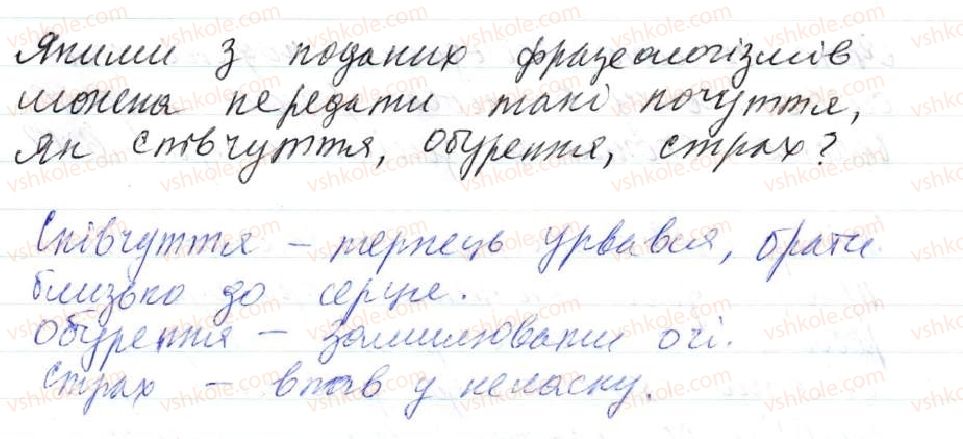 Якими з поданих фразеологізмів
можна передати такі почуття,
як співчуття, обурення, страх?
Співчуття – терпець урвався, брати
близько до серця.
Обурення – замилювати очі.
Страх – впав у неласку.